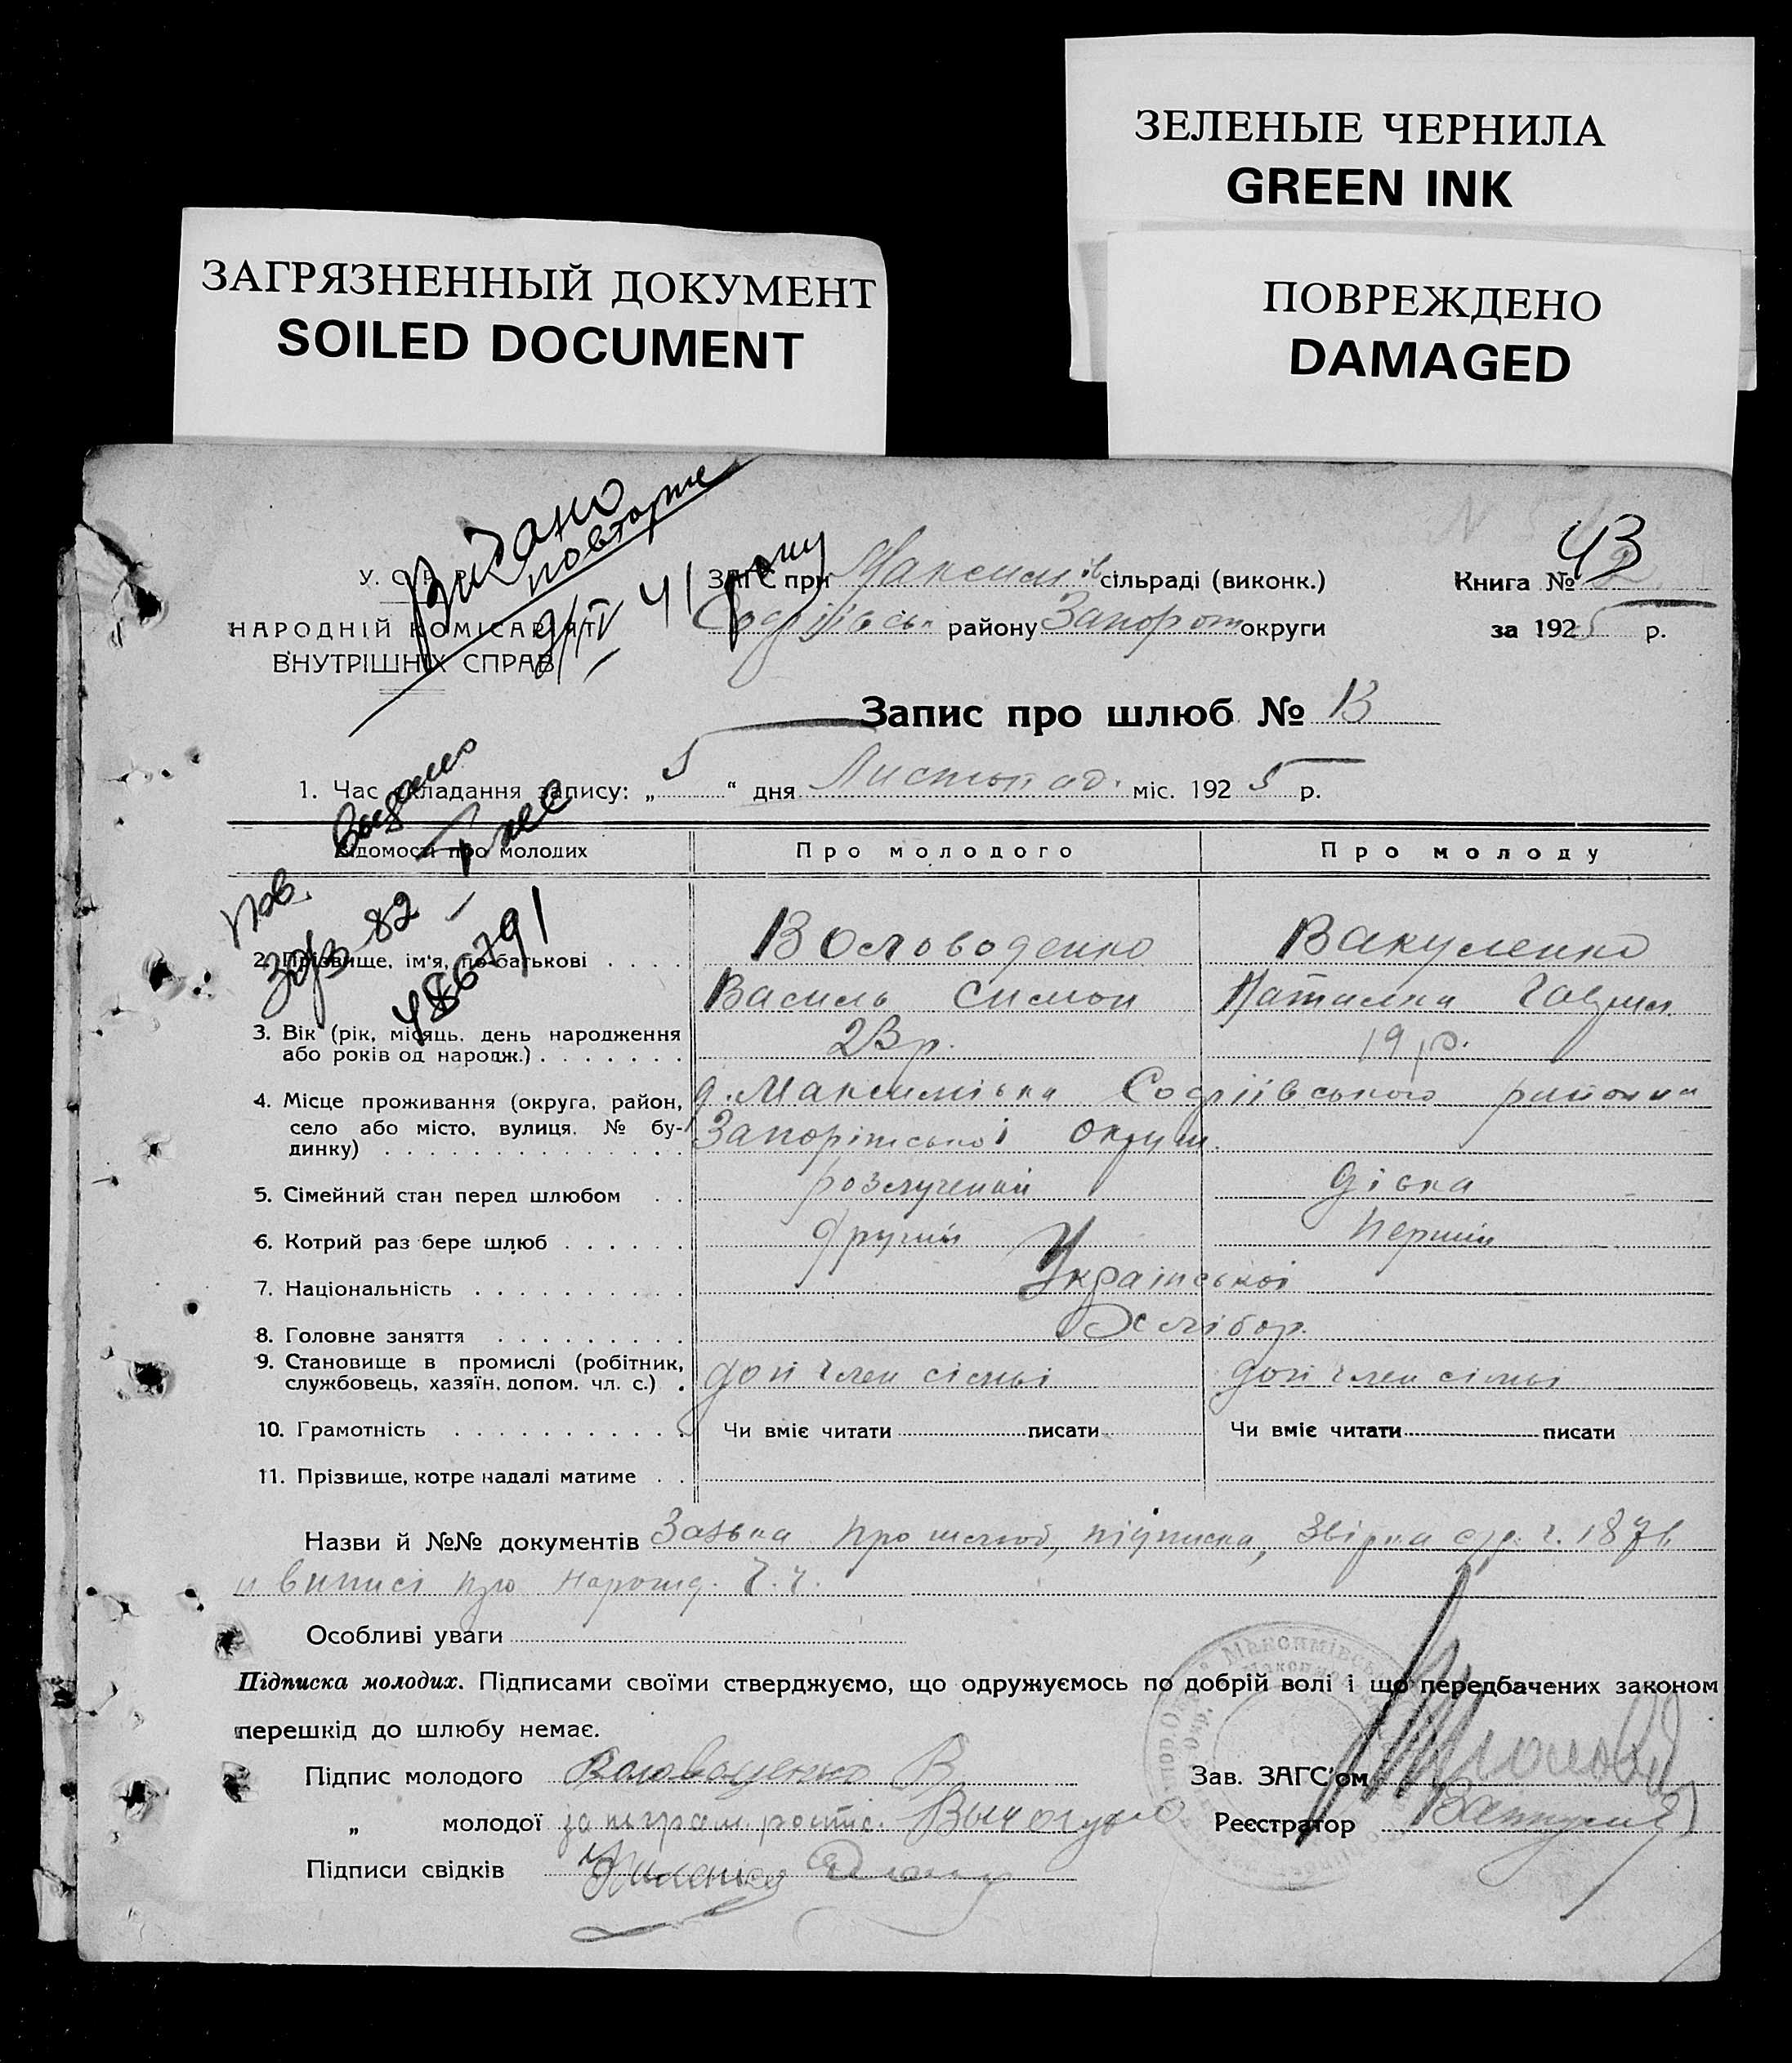 ЗЕЛЕНЫЕ ЧЕРНИЛА
GREEN INK
ЗАГРЯЗНЕННЫЙ ДОКУМЕНТ
SOILED DOCUMENT
ПОВРЕЖДЕНО
DAMAGED
Видано
повторне
9/IV 41 року
43
У. С. Р. Р.
НАРОДНІЙ КОМІСАРІЯТ
ВНУТРІШНІХ СПРАВ
ЗАГС при Максимів сільраді (виконк.)
Софіївськ району Запорож округи
Книга № 2
за 1925 р.
Запис про шлюб № 13
1. Час складання запису: „ 5 “ дня Листопад. міс. 1925 р.
Пов. выдано
486791
Відомости про молодих
Про молодого
Про молоду
2. Прізвище, ім'я, по-батькові
Воловоденко
Василь Симон
Вакуленко
Наталка Гаврил.
3. Вік (рік, місяць, день народження
або років од народж.)
23 р.
19 р.
4. Місце проживання (округа, район,
село або місто, вулиця, № бу-
динку)
д. Максимівка Софіївського района
Запоріжської округи.
5. Сімейний стан перед шлюбом
розлучений
дівка
6. Котрий раз бере шлюб
другий
перший
7. Національність
Української
8. Головне заняття
Хлібор.
9. Становище в промислі (робітник,
службовець, хазяїн, допом. чл. с.)
доп член сімьі
доп член сімьі
10. Грамотність
Чи вміє читати писати
Чи вміє читати писати
11. Прізвище, котре надалі матиме
Назви й №№ документів Заявка про шлюб, підписка, Звірка
и виписі про нарожд.
Особливі уваги
Підписка молодих. Підписами своїми стверджуємо, що одружуємось по добрій волі і що передбачених законом
перешкід до шлюбу немає.
Підпис молодого Воловоденко В
„ молодої за неграм. роспис.
Підписи свідків
Зав. ЗАГС'ом
Реєстратор